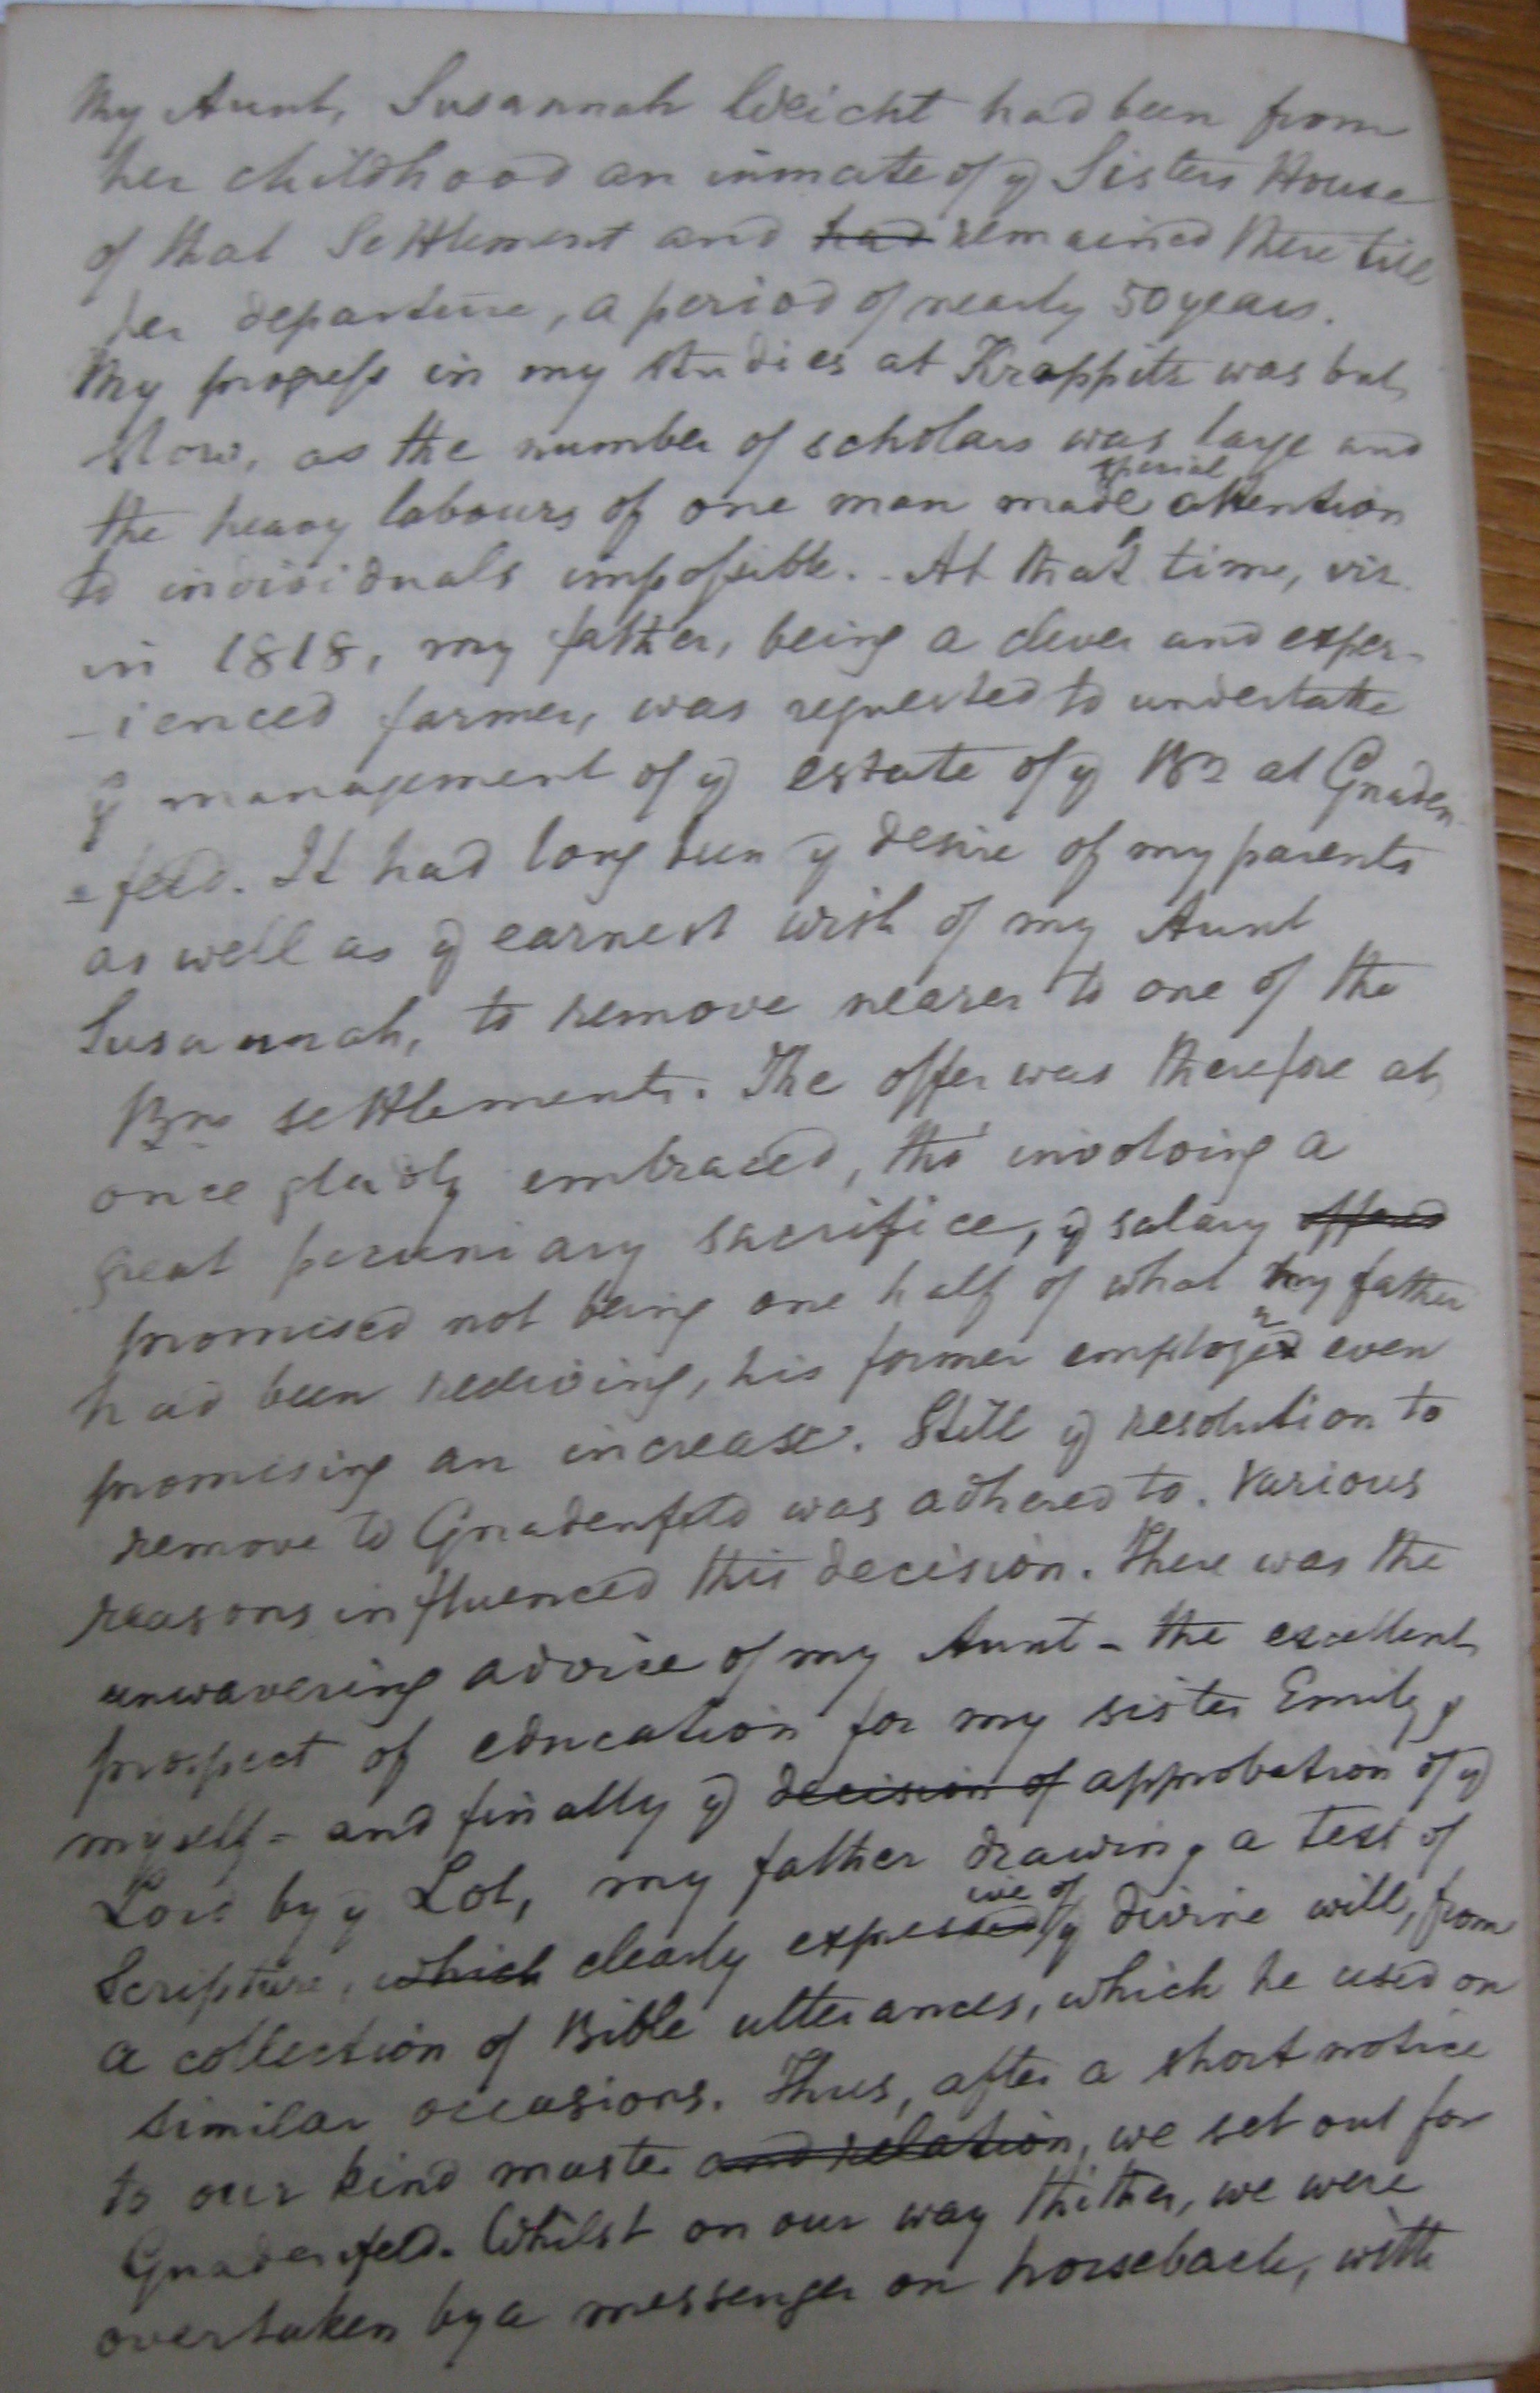 My Aunt, Susannah Weicht had been from
her childhood an inmate of y Sisters House
of that Settlement and had remained there till
her departure, a period of nearly 50 years.
My progress in my studies at Krappitz was but
slow, as the number of scholars was large and
the heavy labours of one man made special attention
to individuals impossible. - At that time, viz.
in 1818, my father, being a clever and exper-
-ienced farmer, was requested to undertake
y management of y estate of y Brn at Gnaden-
=feld. It had long been y desire of my parents
as well as y earnest wish of my Aunt
Susannah, to remove nearer to one of the
Brns settlements. The offer was therefore at
once gladly embraced, tho' involving a
great pecuniary sacrifice, y salary offered
promised not being one half of what my father
had been receiving, his former employer even
promising an increase. Still y resolution to
remove to Gnadenfeld was adhered to. Various
reasons influenced this decision. There was the
unwavering advice of my Aunt - the excellent
prospect of education for my sister Emily &
myself - and finally y decision of approbation of y
Lord by y Lot, my father drawing a text of
Scripture, which clearly expressive of y divine will, from
a collection of Bible utterances, which he used on
similar occasions. Thus, after a short notice
to our kind master and relation, we set out for
Gnadenfeld. Whilst on our way thither, we were
overtaken by a messenger on horseback, with